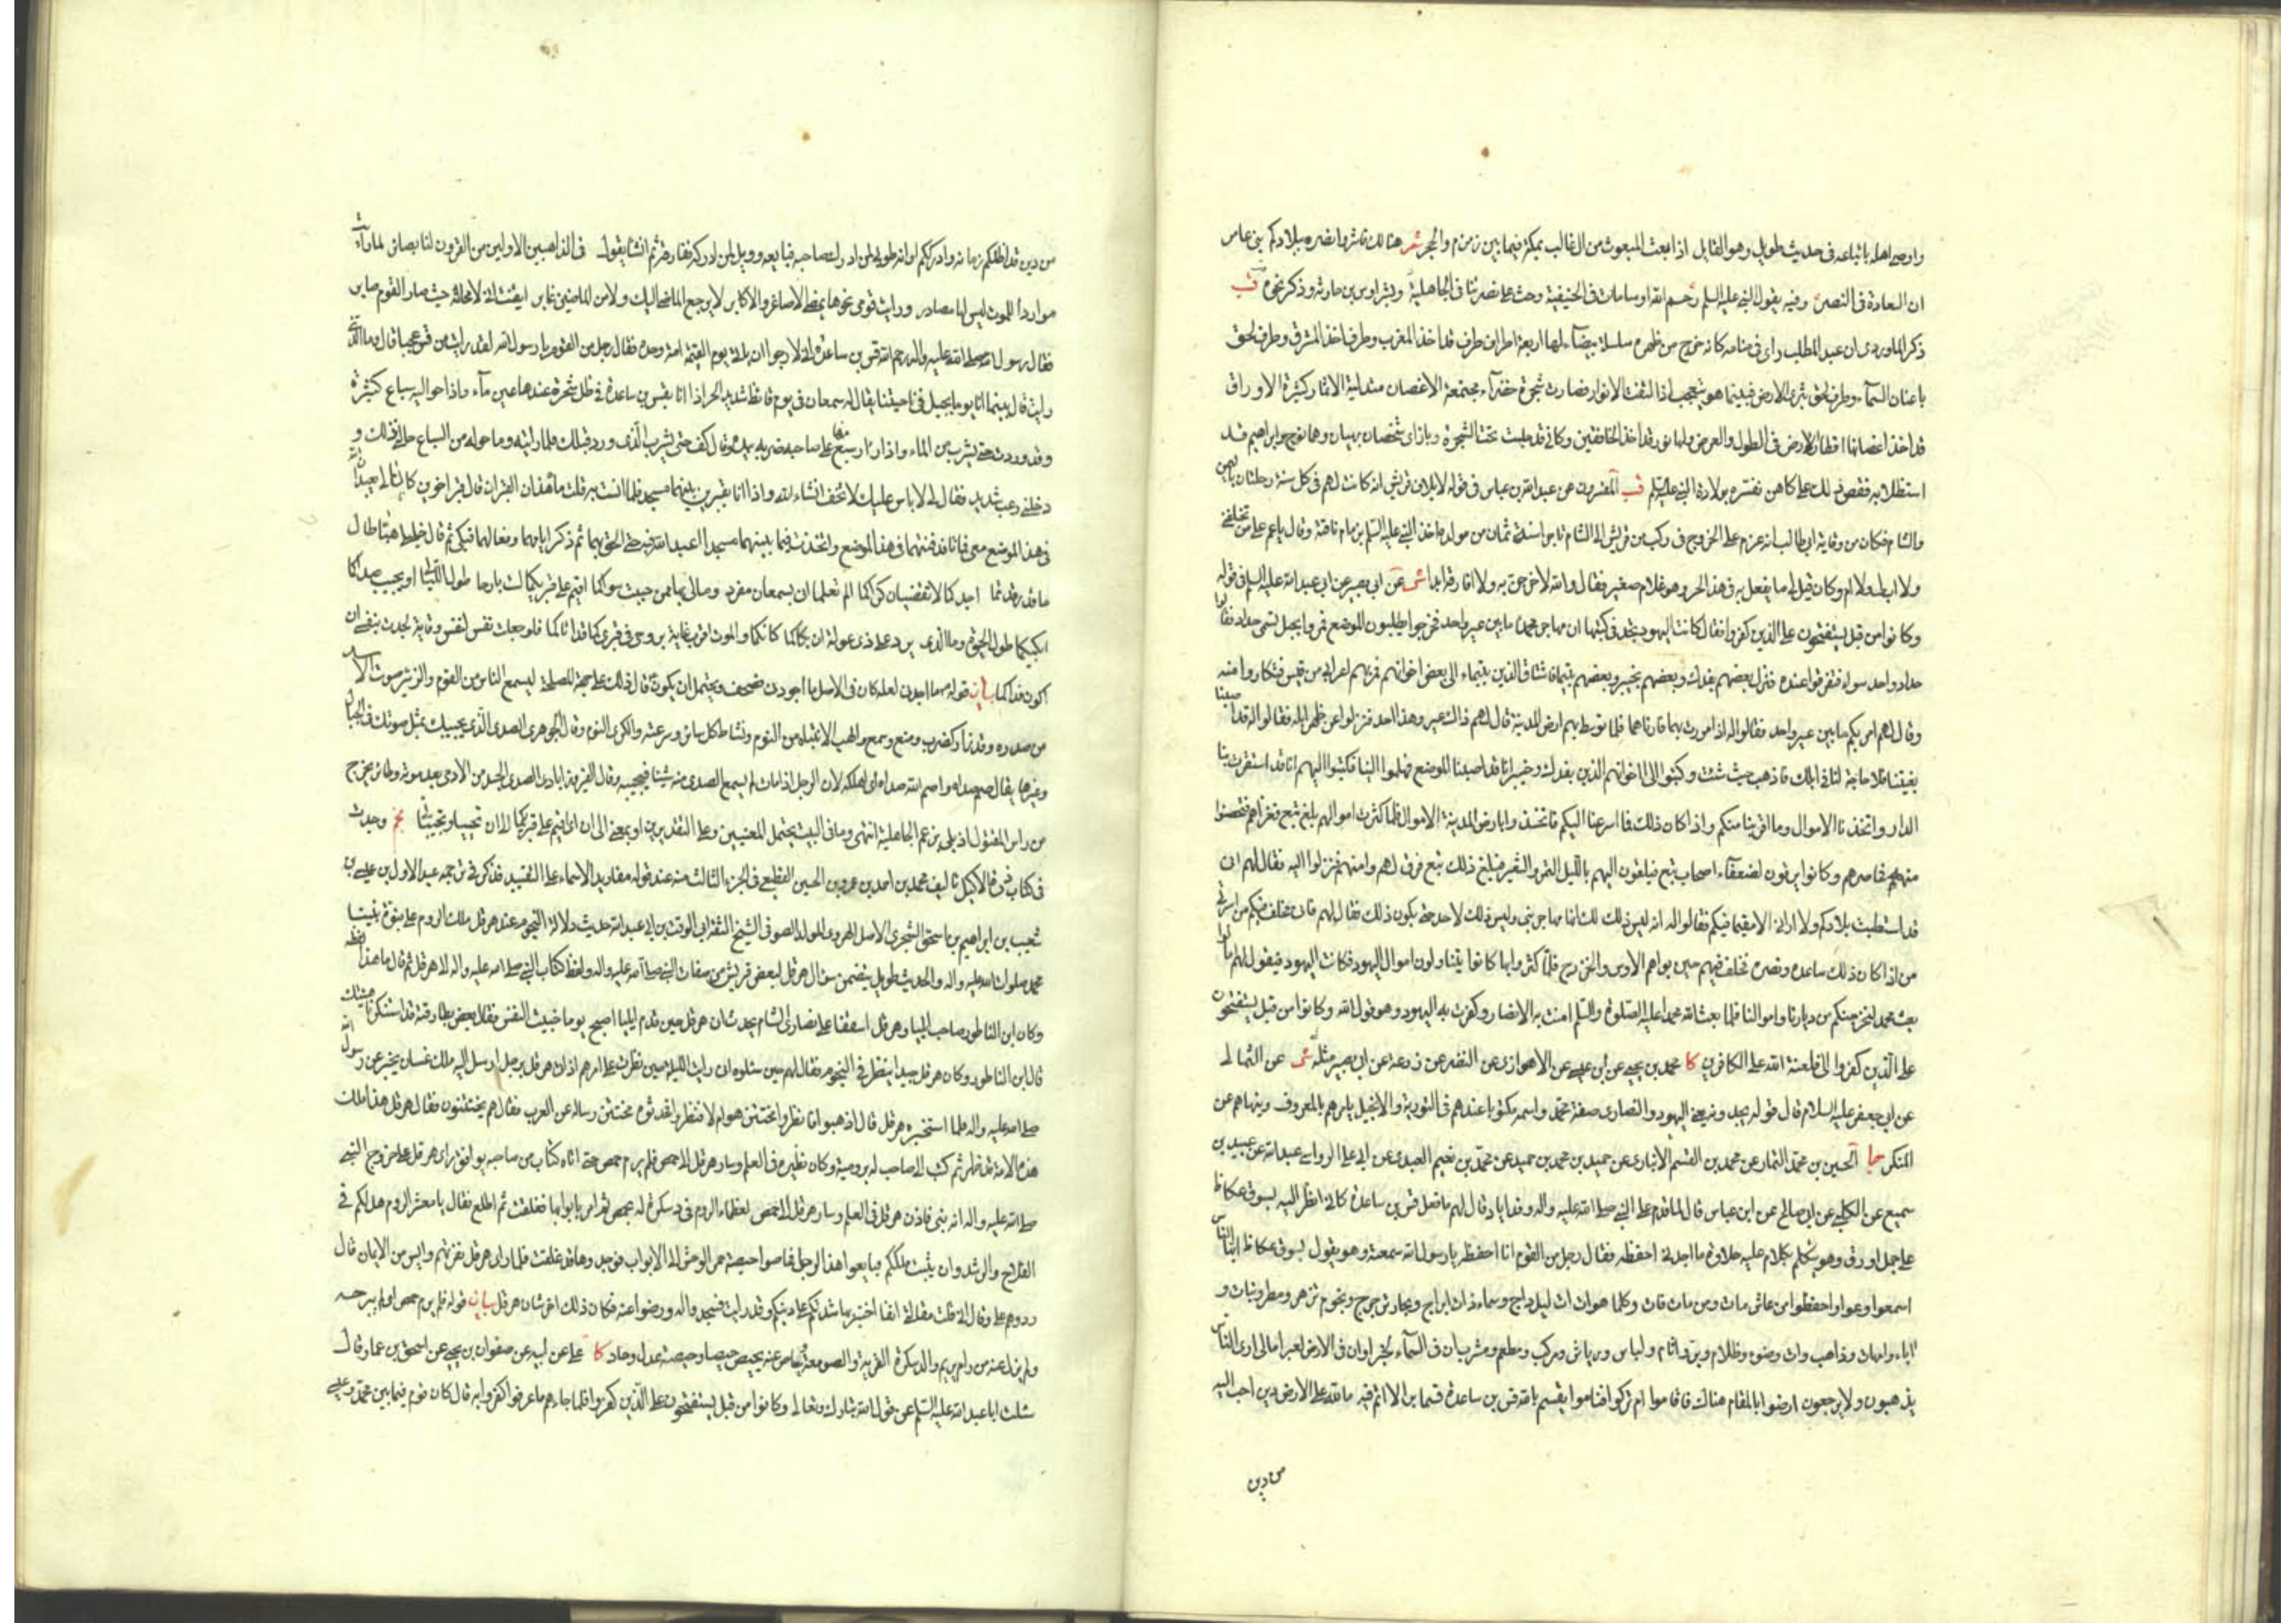 واوصى اهله باتباعه فى حديث طويل وهو القايل اذا بعث المبعوث من ال غالب بمكة فيما بين زمزم والحجر شعر هنالك فاشروا نصره ببلادكم بنى عامر
ان السعادة فى النصر وفيه يقول النبى عليه السلم رحم الله اوسا مات فى الحنيفية وحث على نصرتنا فى الجاهلية وذكر نحوه قب
ذكر الماوردى ان عبد المطلب راى فى منامه كانه خرج من ظهره سلسلة بيضاء لها اربعة اطراف طرف قد اخذ المغرب وطرف اخذ المشرق وطرف لحق
باعنان السماء وطرف لحق بثرى الارض فبينما هو يتعجب اذ التفت الانوار فصارت شجرة خضراء مجتمعة الاغصان متدلية الاثمار كثيرة الاوراق
قد اخذ اغصانها اقطار الارض فى الطول والعرض ولها نور قد اخذ الخافقين وكانى قد جلست تحت الشجرة وبازاى شخصان بهيان وهما نوح وابراهيم قد
استظلا به فقص ذلك على كاهن ففسره بولادة النبى عليه السلم قب المفسرون عن عبد الله بن عباس فى قوله لايلاف قريش انه كانت لهم فى كل سنة رحلتان باليمن
والشام فكان من وقاية ابى طالب انه عزم على الخروج فى ركب من قريش الى الشام تاجرا سنة ثمان من مولده اخذ النبى عليه السلم بزمام ناقته وقال يا عم على من تخلفنى
ولا اب لى ولا ام وكان قيل له ما يفعل به فى هذا الحر وهو غلام صغير فقال والله لاخرجن به ولا افارقه ابدا شى عن ابى بصير عن ابى عبد الله عليه السلم فى قوله
وكانوا من قبل يستفتحون على الذين كفروا فقال كانت اليهود تجد فى كتبها ان مهاجر محمد ما بين عير واحد فخرجوا يطلبون الموضع فمروا بجبل تسمى حداد فقالوا
حداد واحد سواء فتفرقوا عنده فنزل بعضهم بفدك وبعضهم بخيبر وبعضهم بتيما فاشتاق الذين بتيماء الى بعض اخوانهم فمر بهم اعرابى من قيس فتكاروا منه
وقال لهم امر بكم ما بين عير واحد فقالوا له اذا مررت بهما فارناهما فلما توسط بهم ارض المدينة قال لهم ذاك عير وهذا احد فنزلوا عن ظهر ابله فقالوا له قد اصبنا
بغيتنا فلا حاجة لنا فى ابلك فاذهب حيث شئت وكتبوا الى اخوانهم الذين بفدك وخيبر انا قد اصبنا الموضع فهلموا الينا فكتبوا اليهم انا قد استقرت بنا
الدار واتخذنا الاموال وما اقربنا منكم واذا كان ذلك فما اسرعنا اليكم فاتخذوا بارض المدينة الاموال فلما كثرت اموالهم بلغ تبع فغزاهم فتحصنوا
منهم فحاصرهم وكانوا يرقون لضعفاء اصحاب تبع فيلقون اليهم بالليل التمر والشعير فبلغ ذلك تبع فرق لهم وامنهم فنزلوا اليه فقال لهم انى
قد استطبت بلادكم ولا ارانى الا مقيما فيكم فقالوا له انه ليس ذلك لك انها مهاجر نبى وليس ذلك لاحد حتى يكون ذلك فقال لهم فانى مخلف فيكم من اسرتى
من اذا كان ذلك ساعده ونصره فخلف فيهم حين بواهم الاوس والخزرج فلما كثروا بها كانوا يتناولون اموال اليهود فكانت اليهود فيقول لهم اما لو
بعث محمد لنخرجنكم من ديارنا واموالنا فلما بعث الله محمدا عليه الصلوة والسلم امنت به الانصار وكفرت به اليهود وهو قول الله وكانوا من قبل يستفتحون
على الذين كفروا الى فلعنة الله على الكافرين كا محمد بن يحيى عن ابن عيسى عن الاهوازى عن النضر عن زرعة عن ابى بصير مثله شى عن الثمالى
عن ابى جعفر عليه السلام قال قوله يجدونه يعنى اليهود والنصارى صفة محمد واسمه مكتوبا عندهم فى التورية والانجيل يامرهم بالمعروف وينهاهم عن
المنكر جا الحسين بن محمد التمار عن محمد بن القسم الانبارى عن حميد بن محمد بن حميد عن محمد بن نعيم العبدى عن ابى على الرواسى عبد الله عن عبيد بن
سميع عن الكلبى عن ابى صالح عن ابن عباس قال لما قدم على النبى صلى الله عليه واله وفد اياد قال لهم ما فعل قس بن ساعدة كانى انظر اليه بسوق عكاظ
على جمل اورق وهو يتكلم بكلام عليه حلاوة ما اجدنى احفظه فقال رجل من القوم انا احفظه يا رسول الله سمعته وهو يقول بسوق عكاظ ايها الناس
اسمعوا وعوا واحفظوا من عاش مات ومن مات فات وكلما هو ات ات ليل داج وسماء ذات ابراج وبحار ترجرج ونجوم تزهر ومطر ونبات و
اباء وامهات وذاهب وات وضوء وظلام وبر واثام ولباس ورياش ومركب ومطعم ومشرب ان فى السماء لخبرا وان فى الارض لعبرا مالى ارى الناس
يذهبون ولا يرجعون ارضوا بالمقام هناك فاقاموا ام تركوا فناموا يقسم بالله قس بن ساعدة قسما برا لا اثم فيه ما لله على الارض دين احب اليه
من دين
من دين قد اظلكم زمانه وادرككم اوانه طوبى لمن ادرك صاحبه فبايعه وويل لمن ادركه ففارقه ثم انشا يقول فى الذاهبين الاولين من القرون لنا بصائر لما رايت
مواردا للموت ليس لها مصادر ورايت قومى نحوها يمضى الاصاغر والاكابر لا يرجع الماضى اليك ولا من الماضين غابر ايقنت انى لا محالة حيث صار القوم صاير
فقال رسول الله صلى الله عليه واله رحم الله قس بن ساعدة انى لارجو ان ياتى يوم القيمة امة وحده فقال رجل من القوم يا رسول الله لقد رايت من قس عجبا قال وما الذى
رايت قال بينما انا يوما بجبل فى ناحيتنا يقال له سمعان فى يوم قائظ شديد الحر اذا انا بقس بن ساعدة فى ظل شجرة عندها عين ماء واذا حواليه سباع كثيرة
وقد وردت حتى يشرب من الماء واذا زار سبع منها على صاحبه ضربه بيده وقال كف حتى يشرب الذى ورد قبلك فلما رايته وما حوله من السباع هالنى ذلك و
دخلنى رعب شديد فقال لى لا باس عليك لا تخف انشاء الله واذا انا بقبرين بينهما مسجد فلما انست به قلت ما هذان القبران قال قبر اخوين كانا لى يعبدان الله
فى هذا الموضع معى فماتا فدفنتهما فى هذا الموضع واتخذت فيما بينهما مسجدا اعبد الله فيه حتى الحق بهما ثم ذكر ايامهما وفعالهما فبكى ثم قال خليلى هبا طال
ما قد رقدتما اجدكما لا تقضيان كراكما الم تعلما انى بسمعان مفرد ومالى بها ممن حببت سواكما اقيم على قبريكما لست بارحا طول الليالى او يجيب صداكما
ابكيكما طول الحيوة وما الذى يرد على ذى عولة ان بكاكما كانكما والموت اقرب غاية بروحى فى قبرى كما قد اتاكما فلو جعلت نفس لنفس وقاية لجدت بنفسى ان
اكون فداكما بيان قوله ما اجدنى لعله كان فى الاصل ما اجودنى فصحف ويحتمل ان يكون قال ذلك على جهة المصلحة ليسمع الناس من القوم والزئير صوت الاسد
من صدره وقد زار كضرب ومنع وسمع والهب الانتباه من النوم ونشاط كل سائر وسرعته والكرى النوم وقال الجوهرى الصدى الذى يجيبك بمثل صوتك فى الجبال
وغيرها يقال صم صداه واصم الله صداه اى اهلكه لان الرجل اذا مات لم يسمع الصدى منه شيئا فيجيبه وقال الفيروزابادى الصدى الجسد من الادمى بعد موته وطائر يخرج
من راس المقتول اذا بلى بزعم الجاهلية انتهى وما فى البيت يحتمل المعنيين وعلى التقديرين او بمعنى الى ان اى اقيم على قبريكما الى ان تحييا وتجيبانى نجم وجدت
فى كتاب درة الاكليل تاليف محمد بن احمد بن عمرو بن الحسين القطيعى فى الجزء الثالث منه عند قوله مفاريد الاسماء على التقييد فذكر فى ترجمة عبد الاول بن عيسى بن
شعيب بن ابراهيم بن اسحق السجزى الاصل الهروى المولد الصوفى الشيخ الثقة ابى الوقت بن ابى عبد الله حديث دلالة النجوم عند هرقل ملك الروم على نبوة نبينا
محمد صلوات الله عليه واله والحديث طويل يتضمن سؤال هرقل لبعض قريش من صفات النبى صلى الله عليه واله ولفظ كتاب النبى صلى الله عليه واله الى هرقل ثم قال ما هذا لفظه
وكان ابن الناطور صاحب ايليا وهرقل اسقفا على نصارى الشام يحدث ان هرقل حين قدم ايليا اصبح يوما خبيث النفس فقال بعض بطارقته قد استنكرنا هيئتك
قال ابن الناطور وكان هرقل جيدا ينظر فى النجوم فقال لهم حين سئلوه انى رايت الليلة حين نظرت على امرهم اذ اتى هرقل برجل ارسل اليه ملك غسان يخبر عن رسول الله
صلى الله عليه واله فلما استخبره هرقل قال اذهبوا فانظروا مختتن هو ام لا فنظروا فحدثوه مختتن وساله عن العرب فقال هم يختتنون فقال هرقل هذا ملك
هذه الامة قد ظهر ثم كتب الى صاحب له برومية وكان نظيره فى العلم وسار هرقل الى حمص فلم يرم حمص حتى اتاه كتاب من صاحبه يوافق راى هرقل على خروج النبى
صلى الله عليه واله انه نبى فاذن هرقل فى العلم وسار هرقل الى حمص لعظماء الروم فى دسكرة له بحمص ثم امر بابوابها فغلقت ثم اطلع فقال يا معشر الروم هل لكم فى
الفلاح والرشد وان يثبت ملككم فبايعوا هذا الرجل فحاصوا حيصة حمر الوحش الى الابواب فوجدوها قد غلقت فلما راى هرقل نفرتهم وايس من الايمان قال
ردوهم على وقال انى قلت مقالتى انفا اختبر بها شدتكم على دينكم وقد رايت فسجدوا له ورضوا عنه فكان ذلك اخر شان هرقل بيان قوله فلم يرم حمص اى لم يبرحه
ولم يزل عنه من رام يريم والدسكرة القرية والصومعة وحاص عنه يحيص حيصا وحيصة عدل وحاد كا على عن ابيه عن صفوان بن يحيى عن اسحق بن عمار قال
سئلت ابا عبد الله عليه السلم عن قول الله تبارك وتعالى وكانوا من قبل يستفتحون على الذين كفروا فلما جاءهم ما عرفوا كفروا به قال كان قوم فيما بين محمد وعيسى